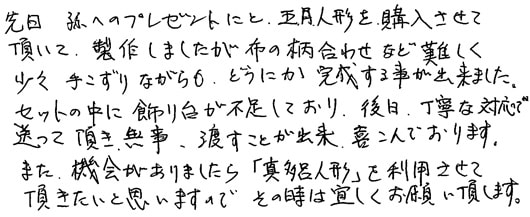 先日 孫へのプレゼントにと、五月人形を購入させて
頂いて、製作しましたが布の柄合わせなど難しく
少々手こずりながらも、どうにか完成する事が出来ました。
セットの中に飾り台が不足しており、後日、丁寧な対応で
送って頂き、無事、渡すことが出来、喜こんでおります。
また、機会がありましたら「真多呂人形」を利用させて
頂きたいと思いますので その時は宜しくお願い頂します。